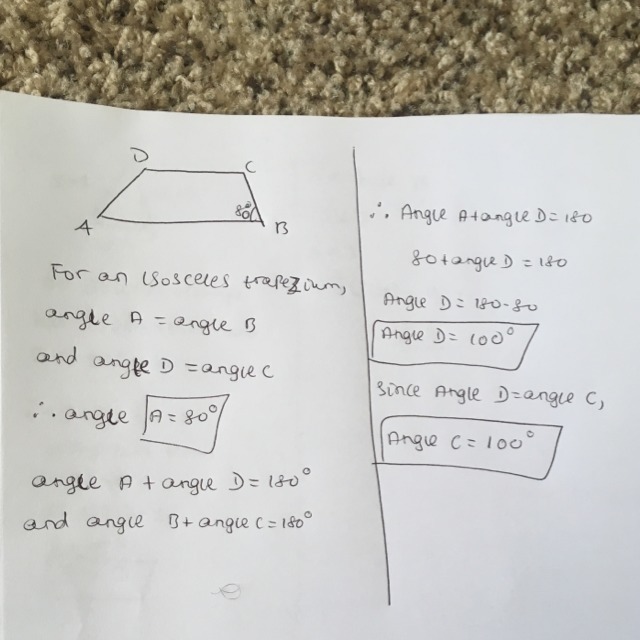 D
C
80°
A
B
For an isosceles trapezium,
angle A = angle B
and angle D = angle C
∴ angle A = 80°
angle A + angle D = 180°
and angle B + angle C = 180°
∴ Angle A + angle D = 180
80 + angle D = 180
Angle D = 180 - 80
Angle D = 100°
Since Angle D = angle C,
Angle C = 100°